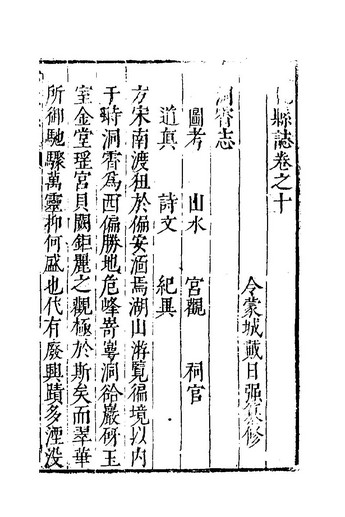 縣誌卷之十
令蒙城戴日强纂修
洞霄志
圖考 山水 宮觀 祠官
道真 詩文 紀異
方宋南渡狃於偏安湎焉湖山游覽徧境以内
于時洞霄爲西偏勝地危峰嵜嶴洞谽巖砑玉
室金堂瑶宮貝闕鉅麗之觀極於斯矣而翠華
所御馳驟萬靈抑何盛也代有廢興蹟多湮没